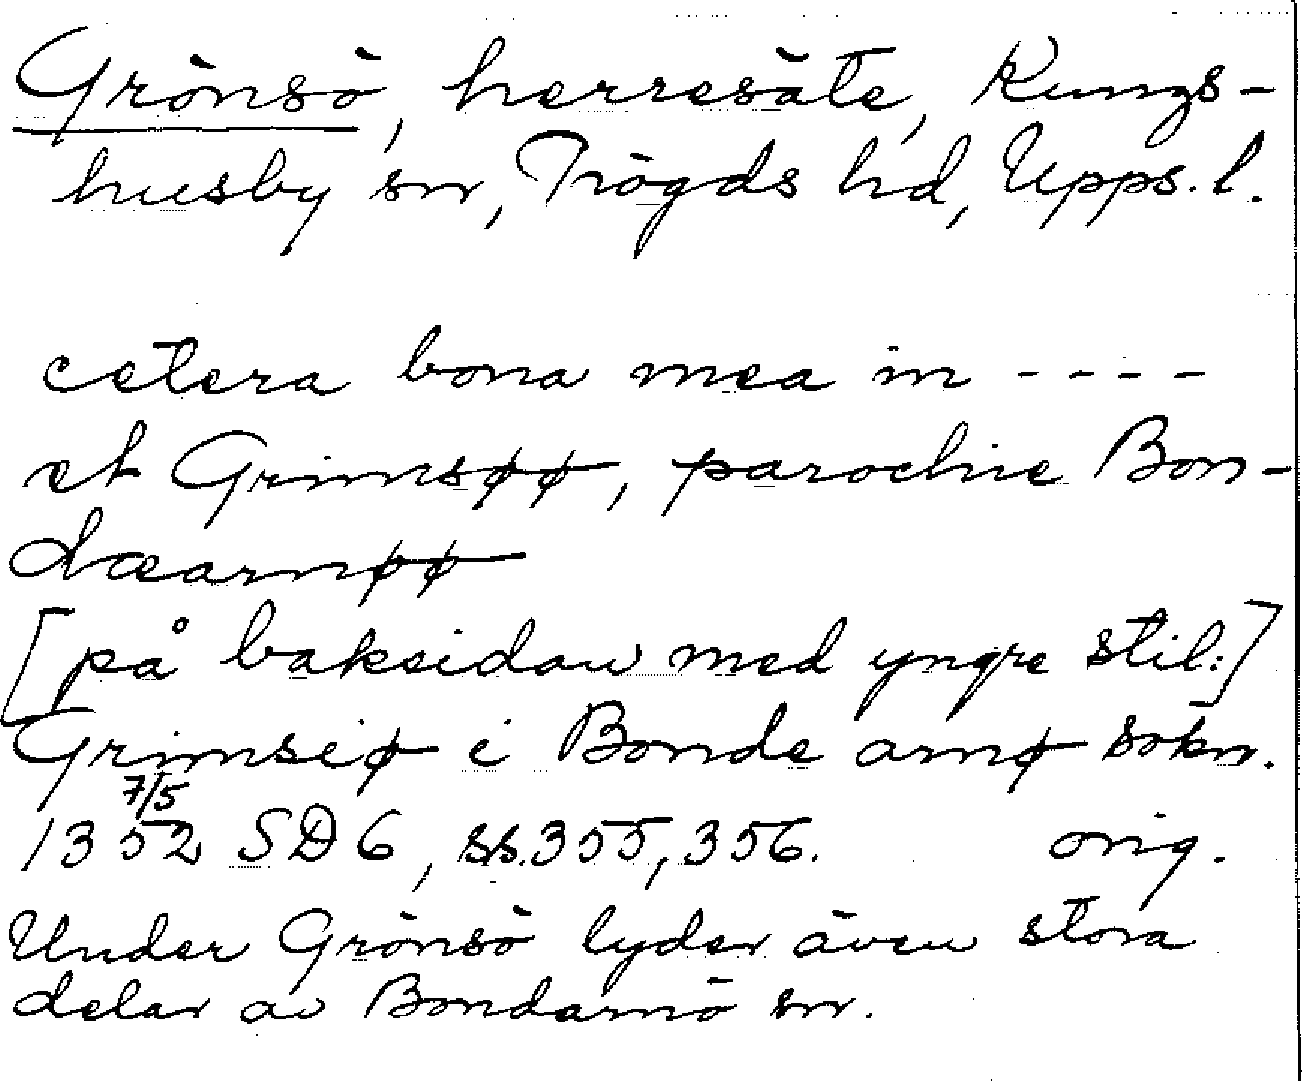 Grönsö, herresäte, Kungs-
husby sn, Trögds hd, Upps. l.
cetera bona mea in - - - -
et Grimsøø, parochie Bon-
dæarnøø
[på baksidan med yngre stil:]
Grimseiø i Bonde arnø sokn.
7/5
1352 SD 6, ss. 355, 356. orig.
Under Grönsö lyder även stora
delar av Bondarnö sn.